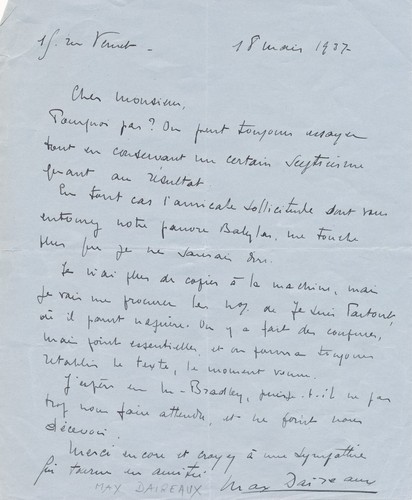 15. rue Vernet - 18 mars 1937
Cher Monsieur,
Pourquoi pas ? On peut toujours essayer
tout en conservant un certain scepticisme
quant au résultat.
En tout cas l'amicale sollicitude dont vous
entourez notre pauvre Babylas, me touche
plus que je ne saurais dire.
Je n'ai plus de copies à la machine, mais
je vais me procurer les nos. de Je Suis Partout,
où il parut naguère. On y a fait des coupures,
mais point essentielles, et on pourra toujours
rétablir le texte, le moment venu.
J'espère en Mr. Bradley, puisse-t-il ne pas
trop nous faire attendre, et ne point nous
décevoir.
Merci encore et croyez à une sympathie
qui tourne en amitié
Max Daireaux
MAX DAIREAUX